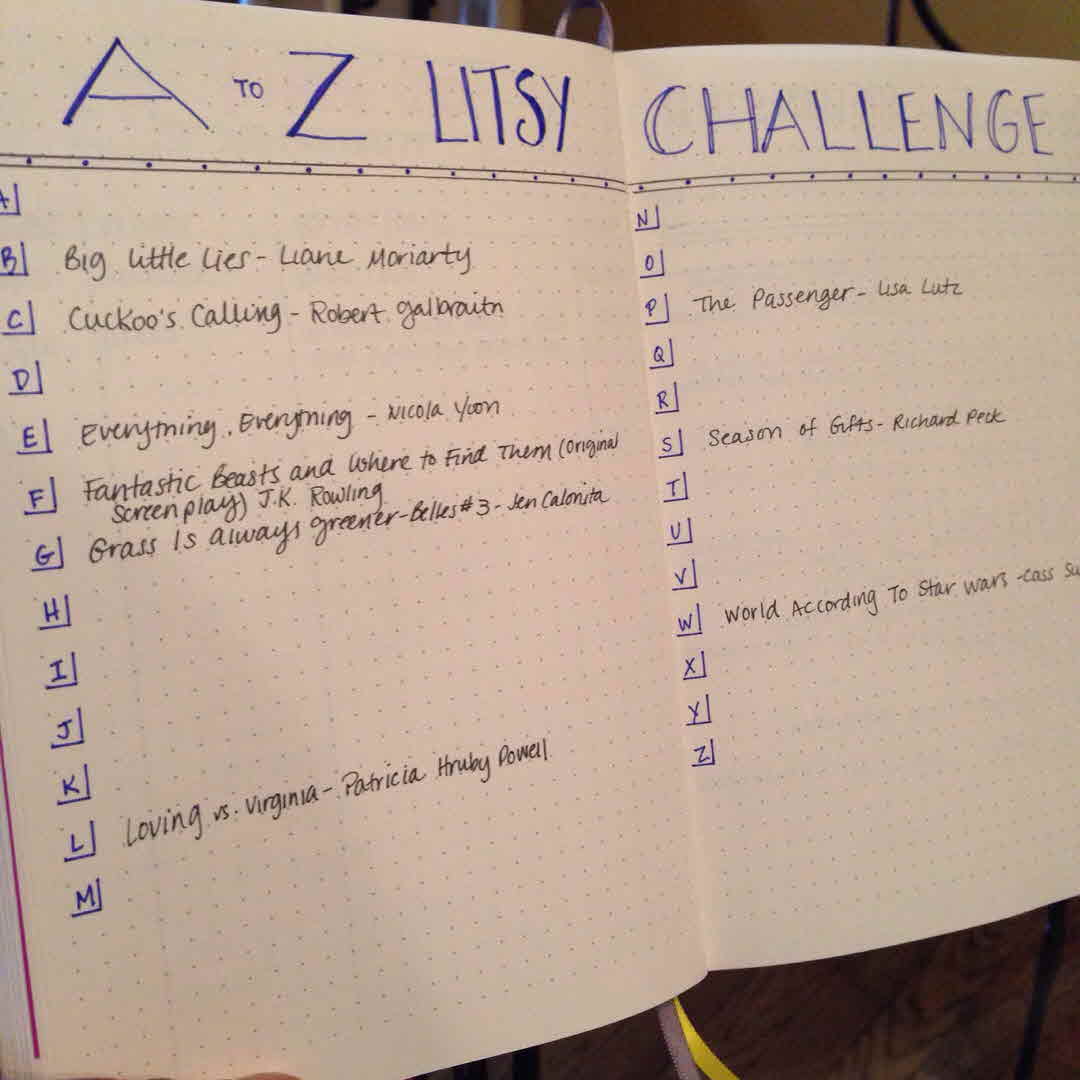 A TO Z LITSY CHALLENGE
A
B Big Little Lies - Liane Moriarty
C Cuckoo's Calling - Robert Galbraith
D
E Everything, Everything - Nicola Yoon
F Fantastic Beasts and Where to Find Them (Original
Screenplay) J.K. Rowling
G Grass Is Always Greener - Belles #3 - Jen Calonita
H
I
J
K
L Loving vs. Virginia - Patricia Hruby Powell
M
N
O
P The Passenger - Lisa Lutz
Q
R
S Season of Gifts - Richard Peck
T
U
V
W World According To Star Wars - Cass
X
Y
Z